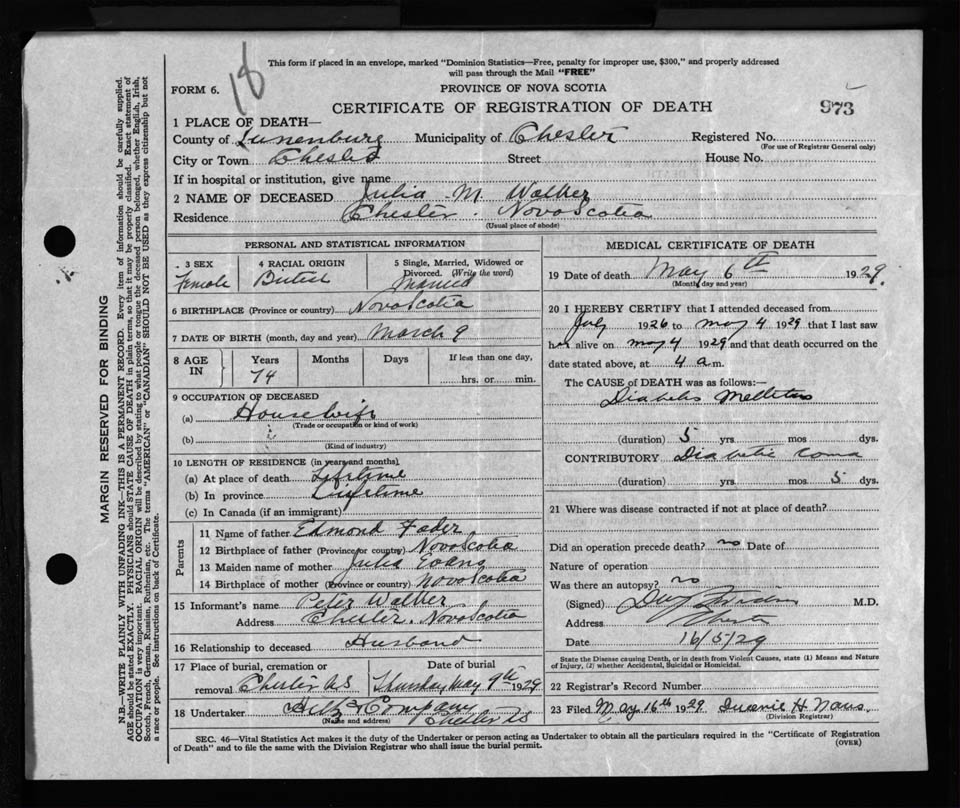 18
This form if placed in an envelope, marked "Dominion Statistics—Free, penalty for improper use, $300," and properly addressed
will pass through the Mail "FREE"
FORM 6.
PROVINCE OF NOVA SCOTIA
CERTIFICATE OF REGISTRATION OF DEATH
973
1 PLACE OF DEATH—
County of Lunenburg Municipality of Chester Registered No.
(For use of Registrar General only)
City or Town Chester Street House No.
If in hospital or institution, give name
2 NAME OF DECEASED Julia M. Walker
Residence Chester. Nova Scotia
(Usual place of abode)
PERSONAL AND STATISTICAL INFORMATION
3 SEX Female
4 RACIAL ORIGIN British
5 Single, Married, Widowed or
Divorced. (Write the word)
Married
6 BIRTHPLACE (Province or country) Nova Scotia
7 DATE OF BIRTH (month, day and year) March 9
8 AGE IN
Years Months Days If less than one day,
74 hrs. or min.
9 OCCUPATION OF DECEASED
(a) Housewife
(Trade or occupation or kind of work)
(b)
(Kind of industry)
10 LENGTH OF RESIDENCE (in years and months)
(a) At place of death Lifetime
(b) In province Lifetime
(c) In Canada (if an immigrant)
Parents
11 Name of father Edmond Fader
12 Birthplace of father (Province or country) Nova Scotia
13 Maiden name of mother Julia Evans
14 Birthplace of mother (Province or country) Nova Scotia
15 Informant's name Peter Walker
Address Chester. Nova Scotia
16 Relationship to deceased Husband
17 Place of burial, cremation or
removal Chester N.S
Date of burial
Thursday May 9th 1929
18 Undertaker & Company
(Name and address) Chester N.S
MEDICAL CERTIFICATE OF DEATH
19 Date of death May 6th 1929.
(Month, day and year)
20 I HEREBY CERTIFY that I attended deceased from
July 1926 to May 4 1929 that I last saw
her alive on May 4 1929 and that death occurred on the
date stated above, at 4 a.m.
The CAUSE OF DEATH was as follows:—
Diabetes Mellitus
(duration) 5 yrs. mos. dys.
CONTRIBUTORY Diabetic Coma
(duration) yrs. mos. 5 dys.
21 Where was disease contracted if not at place of death?
Did an operation precede death? no Date of
Nature of operation
Was there an autopsy? no
(Signed) M.D.
Address Chester
Date 16/5/29
State the Disease causing Death, or in death from Violent Causes, state (1) Means and Nature
of Injury, (2) whether Accidental, Suicidal or Homicidal.
22 Registrar's Record Number
23 Filed May 16th 1929 H.
(Division Registrar)
SEC. 46—Vital Statistics Act makes it the duty of the Undertaker or person acting as Undertaker to obtain all the particulars required in the "Certificate of Registration
of Death" and to file the same with the Division Registrar who shall issue the burial permit.
(OVER)
MARGIN RESERVED FOR BINDING
N.B.—WRITE PLAINLY WITH UNFADING INK—THIS IS A PERMANENT RECORD. Every item of information should be carefully supplied.
AGE should be stated EXACTLY. PHYSICIANS should STATE CAUSE OF DEATH in plain terms, so that it may be properly classified. Exact statement of
OCCUPATION is very important. RACIAL ORIGIN will be described by stating to what people or tongue the deceased person belonged, whether English, Irish,
Scotch, French, German, Russian, Ruthenian, etc. The terms "AMERICAN" or "CANADIAN" SHOULD NOT BE USED as they express citizenship but not
a race or people. See instructions on back of Certificate.